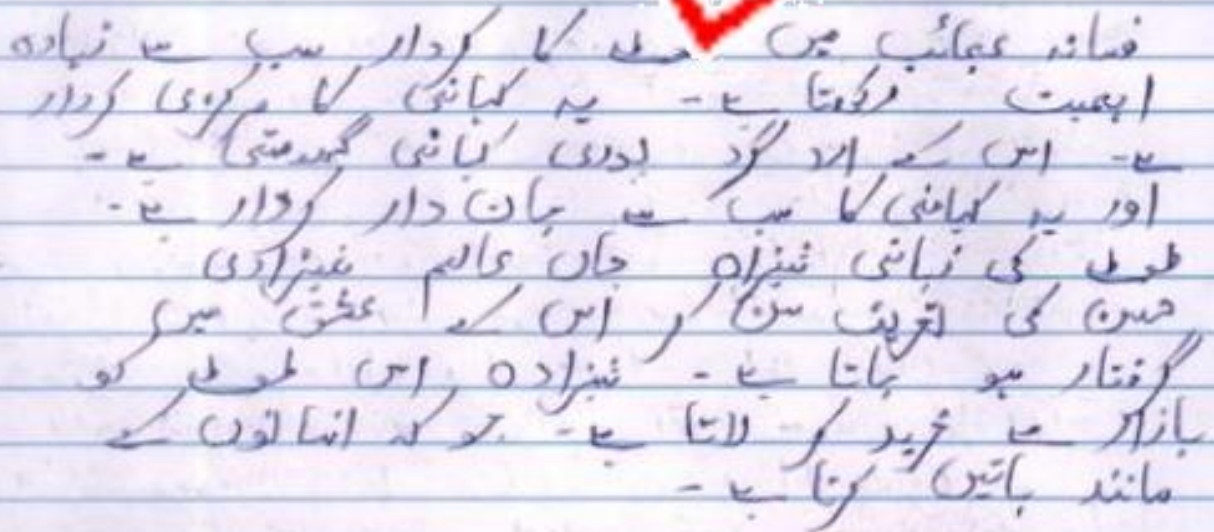 فسانہ عجائب میں طوطے کا کردار سب سے زیادہ
اہمیت رکھتا ہے۔ یہ کہانی کا مرکزی کردار
ہے۔ اس کے ارد گرد پوری کہانی گھومتی ہے۔
اور یہ کہانی کا سب سے جان دار کردار ہے۔
طوطے کی زبانی شہزادہ جان عالم شہزادی
حسن کی تعریف سن کر اس کے عشق میں
گرفتار ہو جاتا ہے۔ شہزادہ اس طوطے کو
بازار سے خرید کر لاتا ہے۔ جو کہ انسانوں کے
مانند باتیں کرتا ہے۔